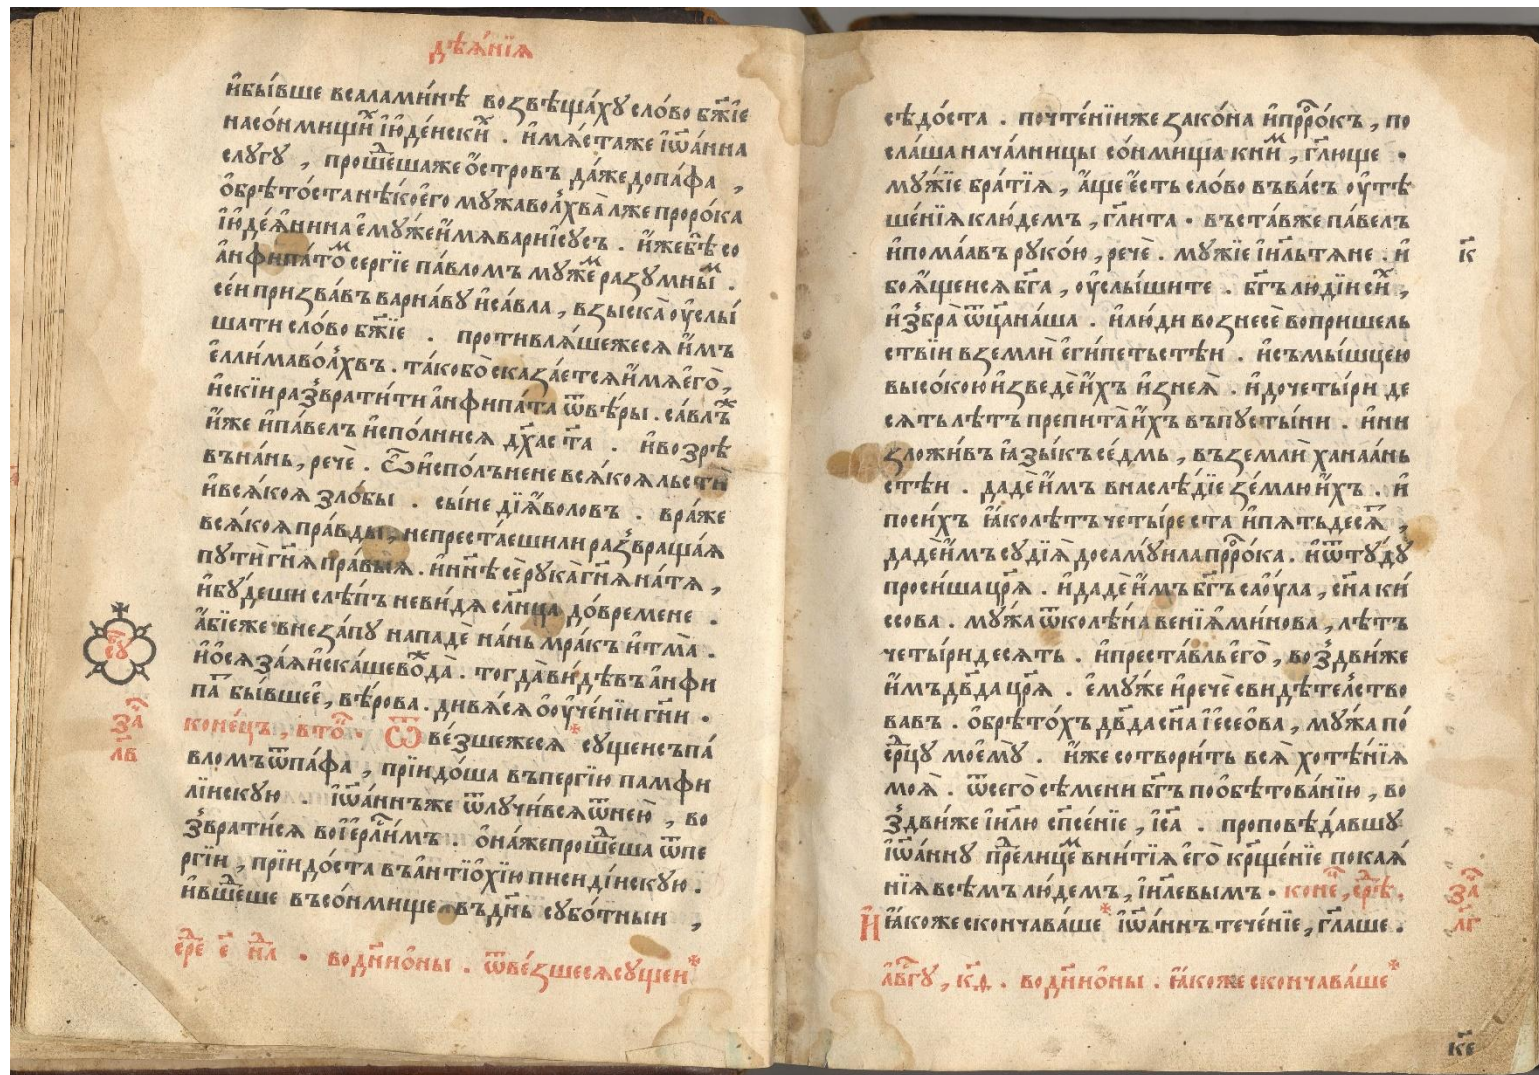 дѣѧ́нїѧ
и҆бы́вше всаламѝнѣ возвѣща́хꙋ сло́во бж҃їе
насо́нмищи̑ⷯ і҆ꙋдѐйски̑ⷯ . и҆мѧ́стаже і҆ѡ҃а́нна
слꙋгꙋ̀ , проше́ⷣшаже ѻ҆́стровъ да́жедопа́фа ,
ѻ҆брѣто́ста нѣ́коего мꙋ́жа волхва̀ лже проро́ка
і҆ꙋдеѧ́нина є҆мꙋ́жеи҆мѧ вариі҆сꙋсъ . и҆́жебѣ̀ со
а҆нфипа́тоⷨ сергїе па́вломъ мꙋ́жеⷨ разꙋмныⷨ .
се́и призва́въ варна́вꙋ и҆са́вла , взыска̀ ᲂу҆слы́
шати сло́во бж҃їе . противлѧ́шежесѧ и҆́мъ
є҆ллѝмаво́лхвъ . та́кобо̀ сказа́етсѧ и҆́мѧ є҆го̀ ,
и҆скїи разврати́ти а҆нфипа́та ѿвѣ́ры . са́влъⷤ
и҆́же и҆па́велъ и҆спо́лнисѧ дх҃аст҃а . и҆возрѣ
въна́нь , речѐ . Ѽ и҆спо́лънене всѧ́коѧ льсти̇̀
и҆всѧ́коѧ ѕло́бы . сы́не дїѧ́воловъ . вра́же
всѧ́коѧ пра́вды , непреста́ешили развраща́ѧ
пꙋтѝ гн҃ѧ пра́выѧ . и҆нн҃ѣ сѐ рꙋка̀ гн҃ѧ на́тѧ ,
и҆бꙋ́деши слѣ́пъ неви́дѧ сл҃нца до́времене .
а҆́бїеже внеза́пꙋ нападѐ на́нь мра́къ и҆тма̀ .
и҆ѻ҆сѧза́ѧ и҆ска́шево́ⷤда̀ . тогда̀ ви́дѣвъ а҆нфи
па́ⷮ бы́вшее , вѣ́рова . дивѧ́сѧ ѻ҆ᲂу҆че́нїи гн҃и .
коне́цъ , вто́ⷬ . Ѿве́зшежесѧ сꙋщеисъпа́
вломъ ѿпа́фа , прїидо́ша въпергїю памфи
лїискꙋю . і҆ѡ҃а́ннъже ѿлꙋчи́всѧ ѿнею̀ , во
звратѝсѧ воі҆ер҃ли́мъ . ѻ҆на́жепроше́ⷣша ѿпе
ргїи , прїидо́ста въа҆нтїѻ҆хїю писиді́искꙋю .
и҆вше́ⷣше въсо́нмище въдн҃ь сꙋбо́тныи ,
сре́ⷣ є҃ нⷣл . водн҃иѻ҆́ны . ѿве́зшесѧ сꙋщеи
є҃ѵ
за́ⷱ
л҃в
сѣдо́ста . почте́нїиже зако́на и҆прⷪ҇ро́къ , по
сла́ша нача́лницы со́нмища книⷨ , гл҃юще .
мꙋ́жїе бра́тїѧ , а҆́ще є҆́сть сло́во въва́съ ᲂу҆тѣ
ше́нїѧ клю́демъ , гл҃ита . въста́вже па́велъ
и҆пома́авъ рꙋко́ю , речѐ . мꙋ́жїе і҆и҃льтѧне . и҆
боѧ́щеисѧ бг҃а , ᲂу҆слы́шите . бг҃ъ лю́дїи сиⷯ ,
и҆збра̀ ѿц҃а на́ша . и҆лю́ди вознесѐ вопришель
ствїи вземлѝ є҆ги́петьстѣи . и҆съмы́шцею
высо́кою и҆зведѐ и҆́хъ и҆знеѧ̀ . и҆дочеты́ри де
сѧть лѣ́тъ препита̀ и҆́хъ въпꙋсты́ни . и҆ни
зложи́въ ꙗ҆зы́къ се́дмь , въземлѝ ханаа́нь
стѣи . дадѐ и҆́мъ внаслѣ́дїе зе́млю и҆́хъ . и҆
поси́хъ ꙗ҆́ко лѣ́тъ четы́реста и҆пѧтьдесѧ́ⷮ ,
дадѐ и҆́мъ сꙋдїѧ̀ досамꙋи́ла прⷪ҇ро́ка . и҆ѿтꙋ́дꙋ
проси́ша цр҃ѧ . и҆дадѐ и҆́мъ бг҃ъ саᲂу́ла , сн҃а ки́
ссова . мꙋ́жа ѿколѣ́на венїѧми́нова , лѣ́тъ
четы́ридесѧть . и҆преста́вль є҆го̀ , воздви́же
и҆́мъ дв҃да цр҃ѧ . є҆мꙋ́же и҆речѐ свидѣ́телство
вавъ . ѻ҆брѣто́хъ дв҃да сн҃а і҆есео́ва , мꙋ́жа по́
ср҃цꙋ моемꙋ̀ . и҆́же сотвори́ть всѧ̀ хотѣ́нїѧ
моѧ̀ . ѿсего̀ сѣ́мени бг҃ъ поѻ҆бѣтова́нїю , во
здви́же і҆и҃лю сп҃се́нїе , і҆с҃а . проповѣ́давшꙋ
і҆ѡ҃а́ннꙋ пре́ⷣлице́ⷨ вни́тїѧ є҆го̀ крⷭ҇ще́нїе покаѧ́
нїѧ всѣ́мъ лю́демъ , і҆и҃левымъ . коне́ⷰ , сре́ⷣѣ .
И҆ ꙗ҆́коже скончава́ше і҆ѡ҃а́ннъ тече́нїе , гл҃аше .
а҆́вгⷭ꙼ꙋ , к҃ѳ . водн҃иѻ҆́ны . ꙗ҆́коже скончава́ше
к҃
за́ⷱ
л҃г
к҃є